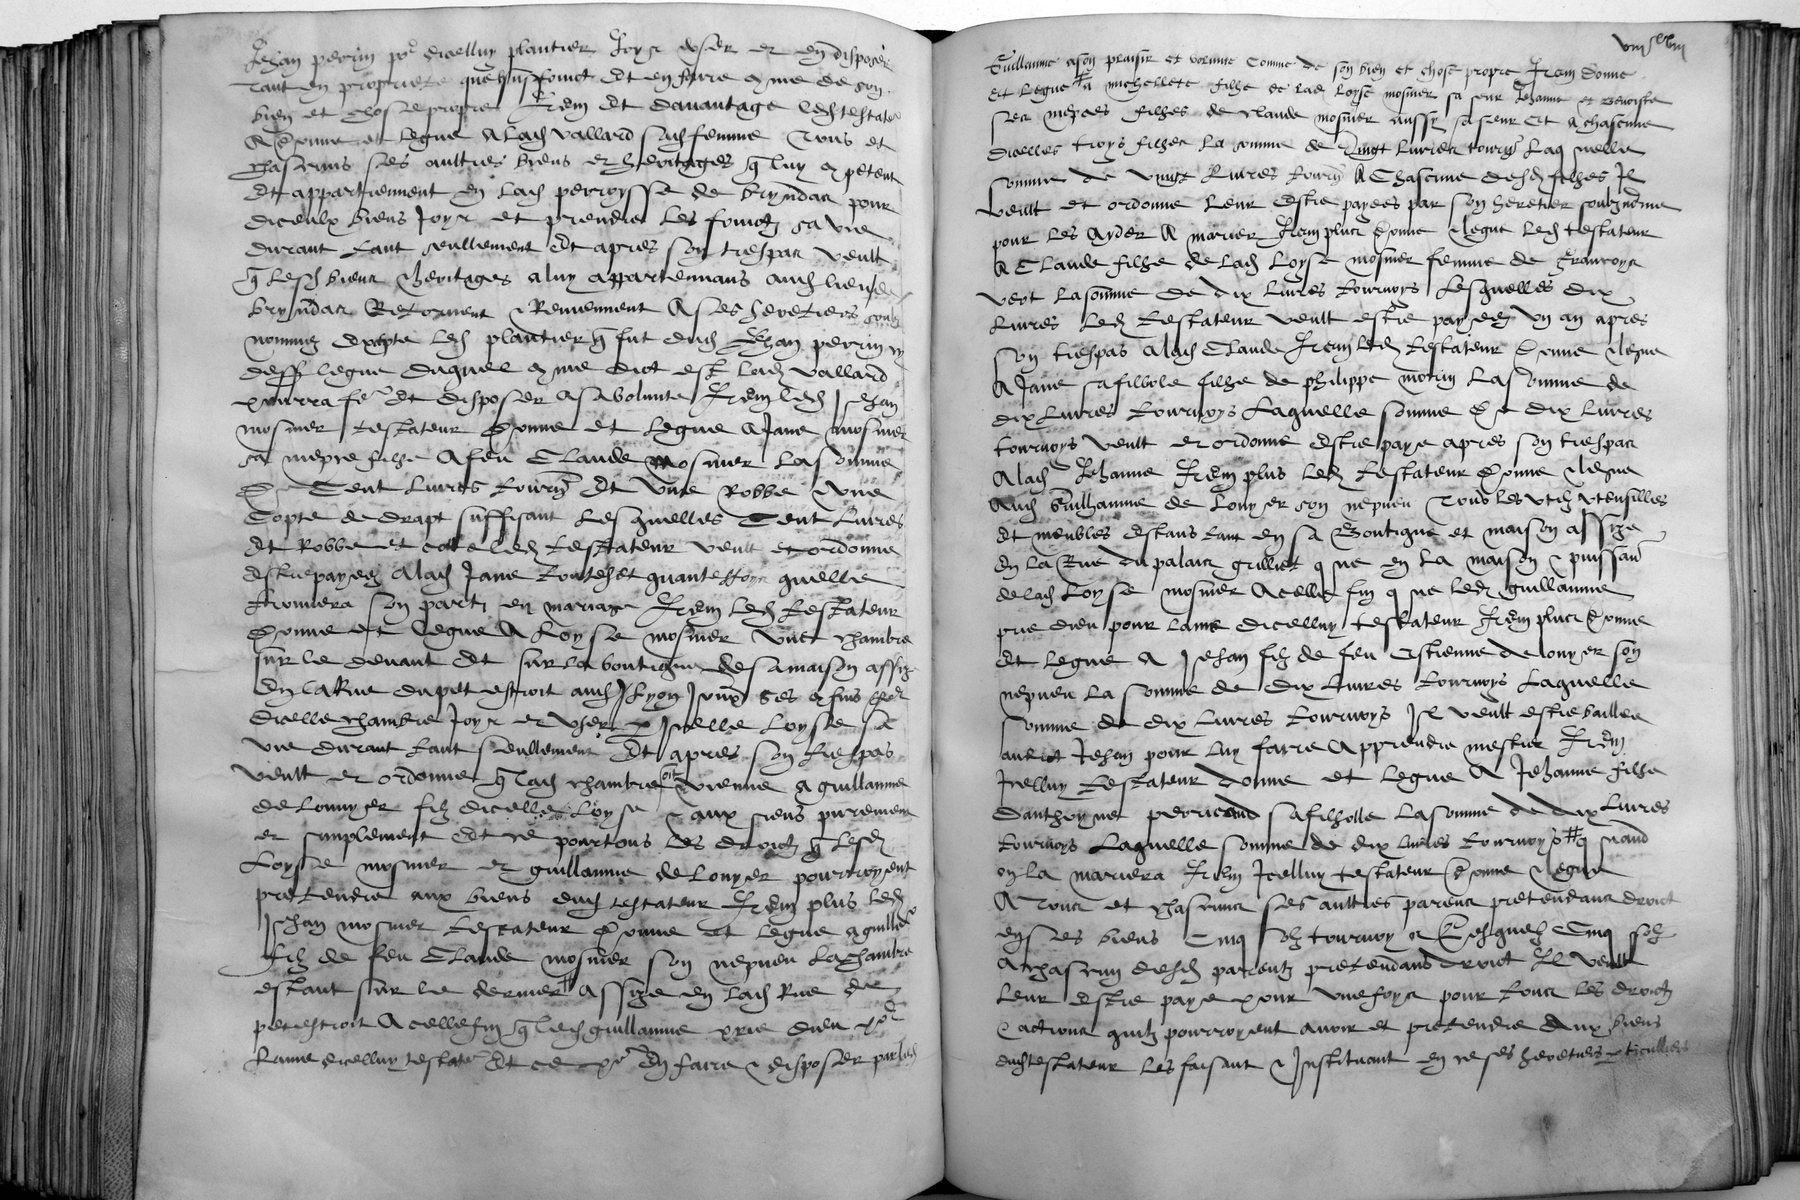 Jehan perrin po.r dicelluy plantier Joyr user et en disposer
tant en propriete que usufruict et en faire comme de son
bien et chose propre Item et davantage ledit testateur
A donne et legue A lad vallard sad femme tous et
chascuns ses aultres biens et heritages q luy competent
et appartiennent en lad perroysse de bryndas pour
diceulx biens Joyr et prendre les fruictz sa vie
durant tant seullement et apres son trespas veult
q lesd biens & heritages a luy appartenans aud lieu de
bryndas Retornent & Reviennent A ses heretiers soubz
nommez excepte led plantier q fut dud Jehan perrin cy
dess legue duquel comme dict est lad vallard
pourra fe.r et disposer a sa volunte Item led Jehan
mosnier testateur donne et legue A Jane mosnier
sa niepce filhe A feu Claude mosnier la somme
De Cent livres tourn et une Robbe & une
Cotte de drapt suffisant lesquelles Cent livres
et Robbe et cotte led testateur veult et ordonne
estre payez A lad Jane toutes et quanteffoys quelle
trouvera son party en mariage Item led testateur
donne et legue A Loyse mosnier une chambre
sur le devant et sur la boutique de sa maison assize
en la Rue du pet estroit aud Lyon Joinx ses confins Pour
dicelle chambre Joyr et user p Icelle Loyse sa
vie durant tant seullement Et apres son trespas
veult et ordonne q lad chambre soit & vienne a guillaume
de Lonnyer filz dicelle Loyse & aux siens purement
et simplement et ce pour tous les droictz q lesd
Loyse mosnier et guillaume de Lonyer pourroyent
pretendre aux biens dud testateur Item plus led
Jehan mosnier testateur donne et legue A guille
filz de feu Claude mosnier son nepveu la chambre
estant sur le dernier assize en lad Rue du
petestroit A celle fin q led guillaume prie dieu po.r
lame dicelluy testate.r et de po.r en faire & disposer par led
Guillaume a son plaisir et vorunte comme de son bien et chose propre Item donne
et legue a michellete filhe de lad Loyse mosnier sa seur Jehanne et Benoiste
ses niepces filhes de claude mosnier aussy sa seur Et A chascune
dicelles troys filhes la somme de vingt livres tourn.s Laquelle
somme de vingt livres tourn A Chascune desd filhes Il
veult et ordonne leur estre payees par son heretier soubznomme
pour les ayder A marier Item plus donne & legue led testateur
A Claude filhe de lad Loyse mosnier femme de francoys
veyt la somme de dix livres tournoys Lesquelles dix
livres led testateur veult estre payez un an apres
son trespas A lad Claude Item led testateur donne & legue
A Jane sa filhole filhe de philippe morin la somme de
dix livres tournoys Laquelle somme de dix livres
tournoys veult et ordonne estre paye apres son trespas
A lad Jehanne Item plus led testateur donne & legue
Aud Guilhaume de Lonyer son nepveu tous les utilz utensilles
et meubles estans tant en sa Boutique et maison assize
en la Rue du palais grilliet que en la maison & puissan
de lad Loyse mosnier A celle fin que led guillaume
prie dieu pour lame dicelluy testateur Item plus donne
et legue A Jehan filz de feu Estienne de Lonyer son
nepveu la somme de dix livres tournoys Laquelle
somme de dix livres tournoys Il veult estre baillee
audict Jehan pour luy faire apprendre mestier Item
Icelluy testateur donne et legue A Jehanne filhe
danthoyne perricaud sa filholle la somme de dix livres
tournoys Laquelle somme de dix livres tournoys quand
on la mariera Item Icelluy testateur donne & legue
A tous et chascuns ses aultres parens pretendans droict
en ses biens Cinq solz tournoys Lesquelz Cinq solz
A chascun desd parentz pretendans droict Il veult
leur estre paye pour une foys pour tous les droictz
& actions quilz pourroyent avoir et pretendre Aux biens
dud testateur les faisant & Instituant en ce ses heretiers pticulliers